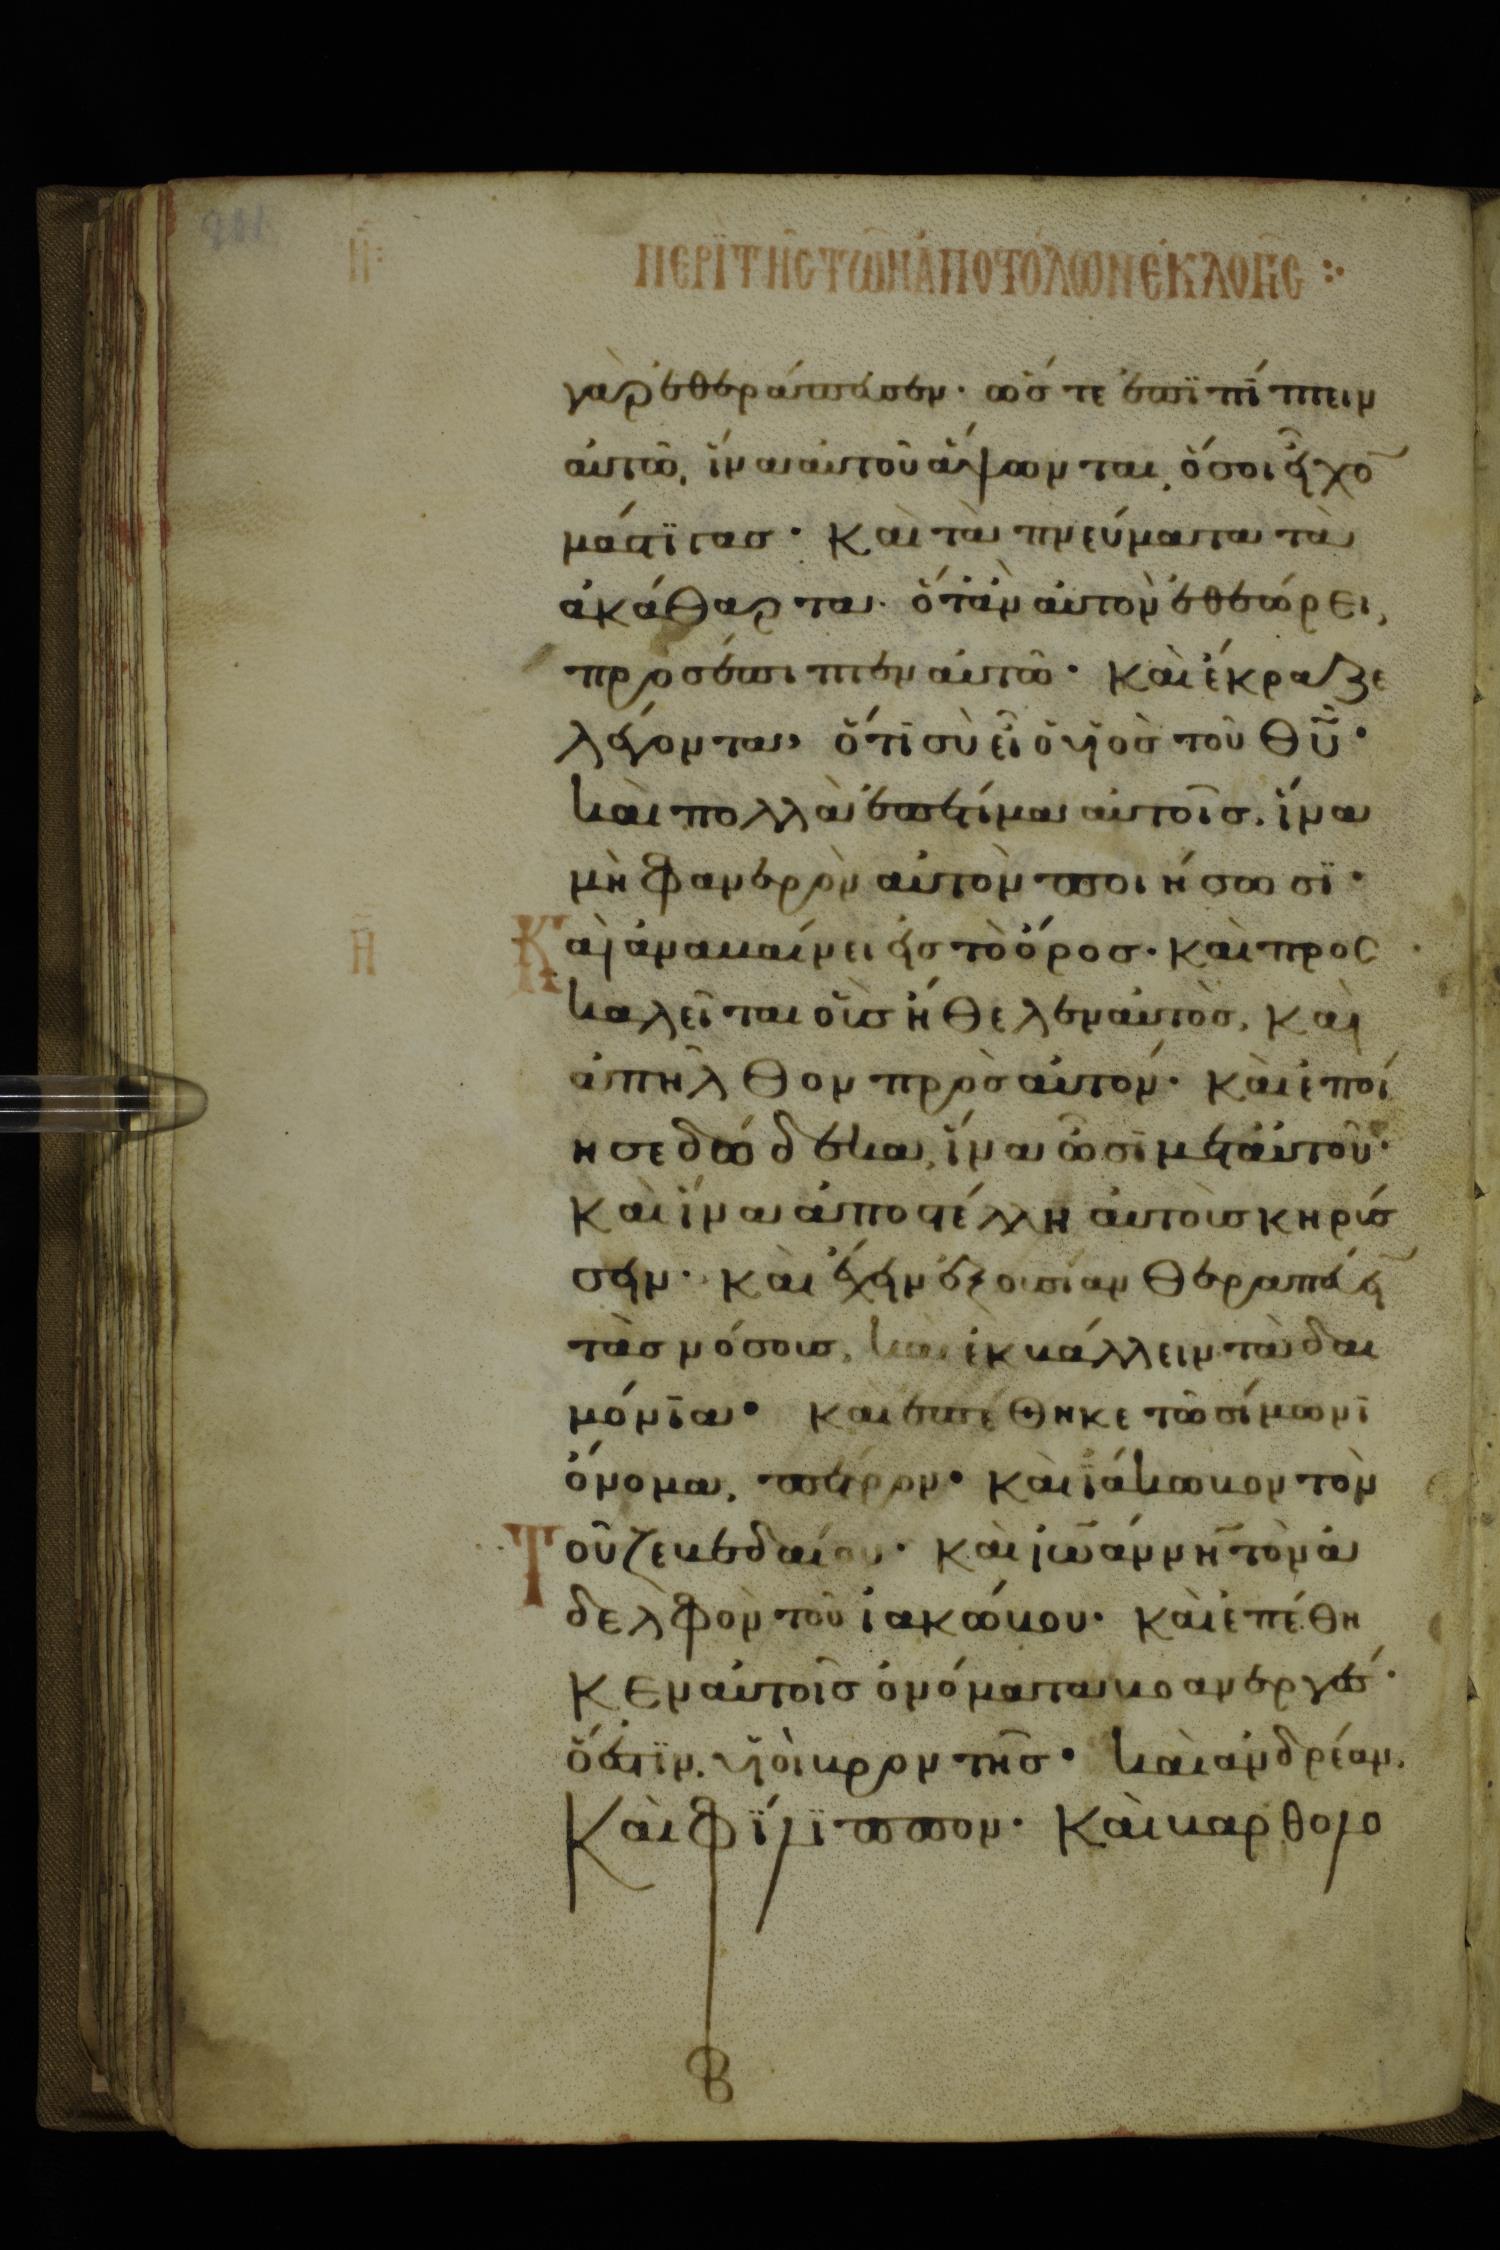 η̄ ΠΕΡΪ ΤΗ͂Σ ΤΩ͂Ν ἈΠΟΣΤΌΛΩΝ ἘΚΛΟΓΗ͂Σ
γὰρ ἐθεράπευσεν· ὥστε ἐπϊπίπτειν
αὐτῶ, ἵνα αὐτοῦ ἅψωνται, ὅσοι εἶχο̅
μάστϊγασ· Καὶ τὰ πνεύματα τὰ
ἀκάθαρτα· ὅτὰν αὐτὸν ἐθεώρει,
προσέπιπτεν αὐτῶ· Καὶ ἔκραζε
λέγοντα, ὅτϊ σὺ εἶ ὁ ϋἱὸσ τοῦ θ̅υ̅·
καὶ πολλὰ ἐπετίμα αὐτοῖσ, ἵνα
μὴ φανερὸν αὐτὸν ποιήσωσϊ·
η̄ Καὶ ἀναβαίνει εἰσ τὸ ὄροσ· Καὶ προσ
καλεῖται οὓσ ἤθελεν αὐτὸσ, Καὶ
ἀπῆλθον πρὸσ αὐτόν· Καὶ ἐποί
ησε δώδεκα, ἵνα ὦσϊ μετ' αὐτοῦ·
Καὶ ἵνα ἀποστέλλη αὐτοὺσ κηρύσ
σειν· Καὶ ἔχειν ἐξουσίαν θεραπεύει̅
τὰσ νόσουσ, καὶ ἐκβάλλειν τὰ δαι
μόνϊα· Καὶ ἐπέθηκε τῶ σίμωνϊ
ὄνομα, πέτρον· Καὶ ϊάκωβον τὸν
Τοῦ ζεβεδαίου· Καὶ ἰωάννην τὸν ἀ
δελφὸν τοῦ ἰακώβου· Καὶ ἐπέθη
κεν αὐτοῖσ ὀνόματα βοανεργέσ·
ὅ ἐστϊν, υἱοὶ βροντῆσ· καὶ ἀνδρέαν,
Καὶ φϊλϊππον· Καὶ βαρθολο